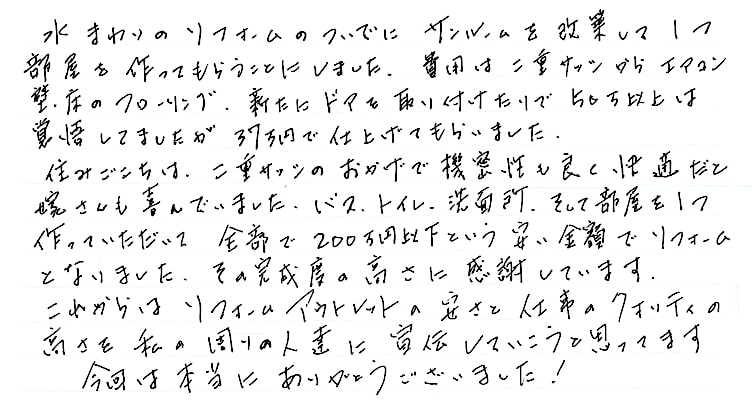 水まわりのリフォームのついでに サンルームを改築して1つ
部屋を作ってもらうことにしました。費用は二重サッシからエアコン
壁・床のフローリング、新たにドアを取り付けたりで50万以上は
覚悟してましたが 37万円で仕上げてもらいました。
住みごこちは、二重サッシのおかげで機密性も良く快適だと
嫁さんも喜んでいました。バス、トイレ、洗面所、そして部屋を1つ
作っていただいて 全部で200万円以下という安い金額でリフォーム
となりました。その完成度の高さに感謝しています。
これからはリフォームアウトレットの安さと仕事のクオリティの
高さを私の周りの人達に宣伝していこうと思ってます
今回は本当にありがとうございました!